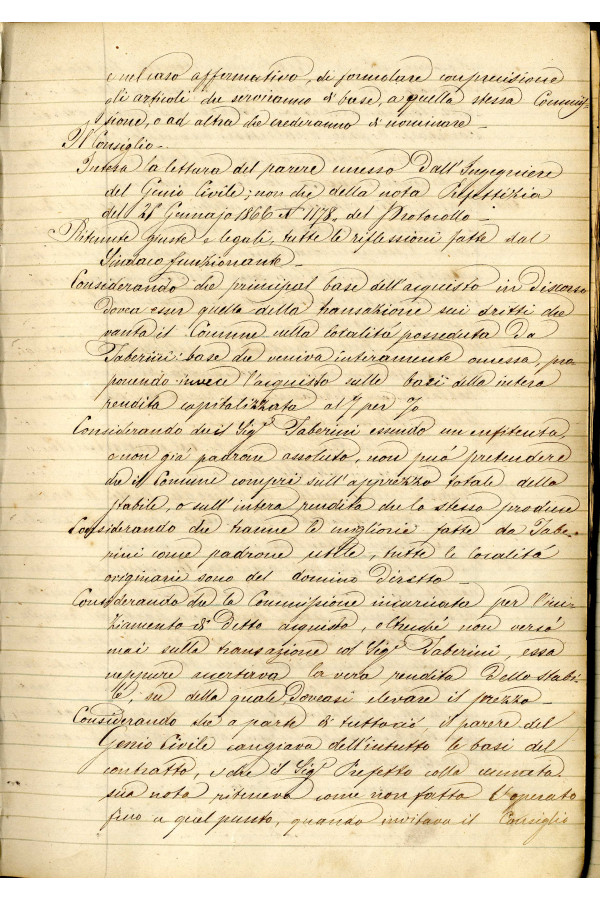 e nel caso affermativo, di formolare con precisione
gli articoli che serviranno di base, a quella stessa Commis-
sione, o ad altra che crederanno di nominare –
Il Consiglio –
Intesa la lettura del parere emesso dall'Ingegniere
del Genio Civile; non che della nota Prefettizia
del 21 Gennajo 1866 N° 1178, del Protocollo –
Ritenute giuste e legali, tutte le riflessioni fatte dal
Sindaco funzionante –
Considerando che principal base dell'acquisto in discorso
dovea esser quella della transazione sui dritti che
vanta il Comune nella località posseduta da
Taberini: base che veniva interamente omessa, pro-
ponendo invece l'acquisto sulle basi della intera
rendita capitalizzata al 7 per %
Considerando che il Sig.r Taberini essendo un enfiteuta,
e non già padrone assoluto, non può pretendere
che il Comune compri sull'apprezzo totale dello
stabile, o sull'intera rendita che lo stesso produce
Considerando che tranne le migliorie fatte da Tabe-
rini come padrone utile, tutte le località
originarie sono del domino diretto –
Considerando che la Commissione incaricata per l'ini-
ziamento di detto acquisto, oltreché non versò
mai sulla transazione col Sig.r Taberini, essa
neppure accertava la vera rendita dello stabi-
le, su della quale doveasi elevare il prezzo –
Considerando che a parte di tuttociò, il parere del
Genio Civile cangiava dell'intutto le basi del
contratto, e che il Sig.r Prefetto colla cennata
sua nota riteneva come non fatto l'operato
fino a quel punto, quando invitava il Consiglio